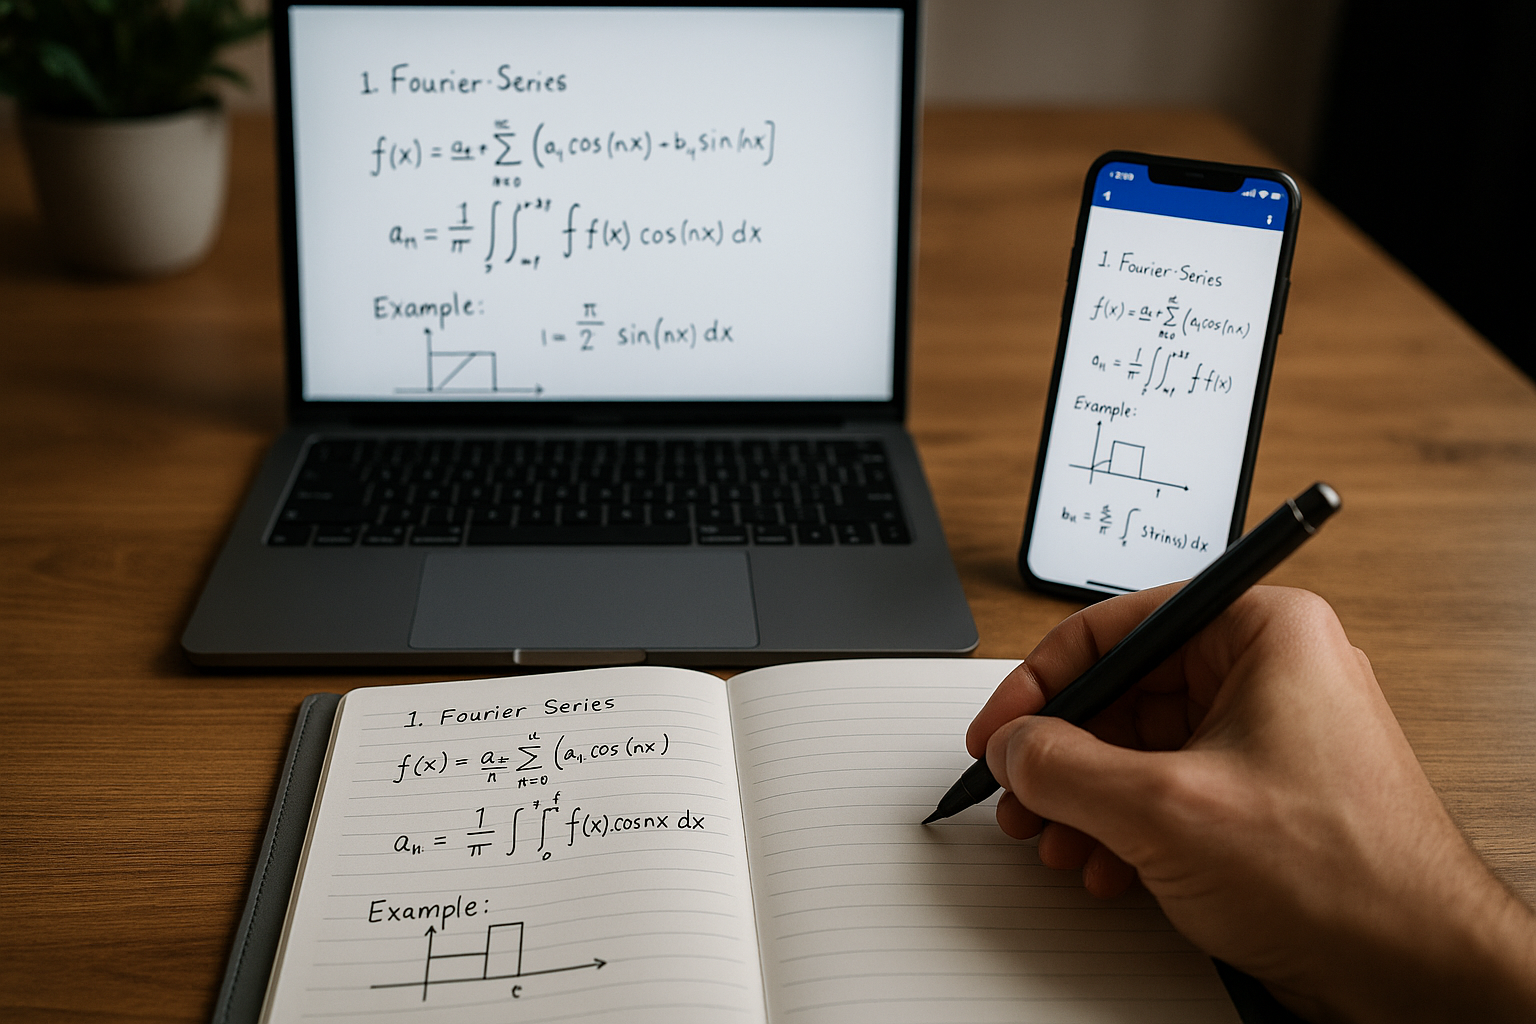 1. Fourier-Series
f(x) = a + ∑ (a cos(nx) - b sin(nx)
n=0
aₙ = 1/π ∫∫ f f(x) cos(nx) dx
Example:
1 = π/2 sin(nx) dx
1. Fourier-Series
f(x) = a + ∑ (a cos(nx)
n=0
aₙ = 1/π ∫∫ f f(x)
Example:
1
bₙ = ∫ dx
1. Fourier Series
f(x) = a±/n ∑ (a₁ cos (nx)
n=0
aₙ. = 1/π ∫∫ f(x).cosnx dx
0
Example:
c